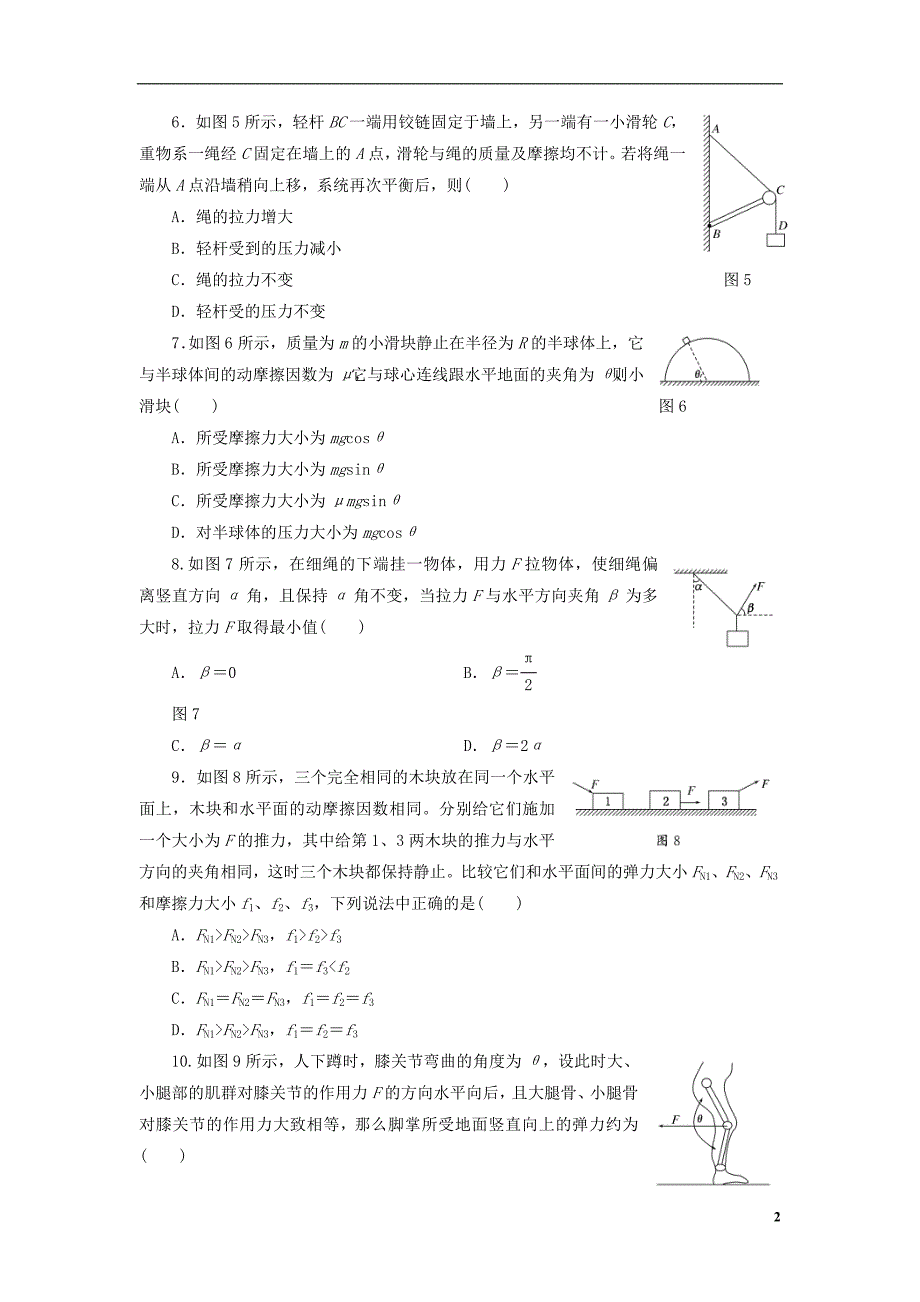 6．如图5所示，轻杆BC一端用铰链固定于墙上，另一端有一小滑轮C，
重物系一绳经C固定在墙上的A点，滑轮与绳的质量及摩擦均不计。若将绳一
端从A点沿墙稍向上移，系统再次平衡后，则(　　)
A．绳的拉力增大
B．轻杆受到的压力减小
C．绳的拉力不变
D．轻杆受的压力不变
A
C
D
B
图5
7.如图6所示，质量为m的小滑块静止在半径为R的半球体上，它
与半球体间的动摩擦因数为μ它与球心连线跟水平地面的夹角为θ则小
滑块(　　)
θ
图6
A．所受摩擦力大小为mgcosθ
B．所受摩擦力大小为mgsinθ
C．所受摩擦力大小为μmgsinθ
D．对半球体的压力大小为mgcosθ
8.如图7所示，在细绳的下端挂一物体，用力F拉物体，使细绳偏
离竖直方向α角，且保持α角不变，当拉力F与水平方向夹角β为多
大时，拉力F取得最小值(　　)
α
F
β
A．β＝0　　B．β＝π/2
图7
C．β＝α　　D．β＝2α
9．如图8所示，三个完全相同的木块放在同一个水平
面上，木块和水平面的动摩擦因数相同。分别给它们施加
一个大小为F的推力，其中给第1、3两木块的推力与水平
方向的夹角相同，这时三个木块都保持静止。比较它们和水平面间的弹力大小FN1、FN2、FN3
和摩擦力大小f1、f2、f3，下列说法中正确的是(　　)
F
1
2
F
3
F
图8
A．FN1>FN2>FN3，f1>f2>f3
B．FN1>FN2>FN3，f1＝f3<f2
C．FN1＝FN2＝FN3，f1＝f2＝f3
D．FN1>FN2>FN3，f1＝f2＝f3
10.如图9所示，人下蹲时，膝关节弯曲的角度为θ，设此时大、
小腿部的肌群对膝关节的作用力F的方向水平向后，且大腿骨、小腿骨
对膝关节的作用力大致相等，那么脚掌所受地面竖直向上的弹力约为
(　　)
F
θ
2